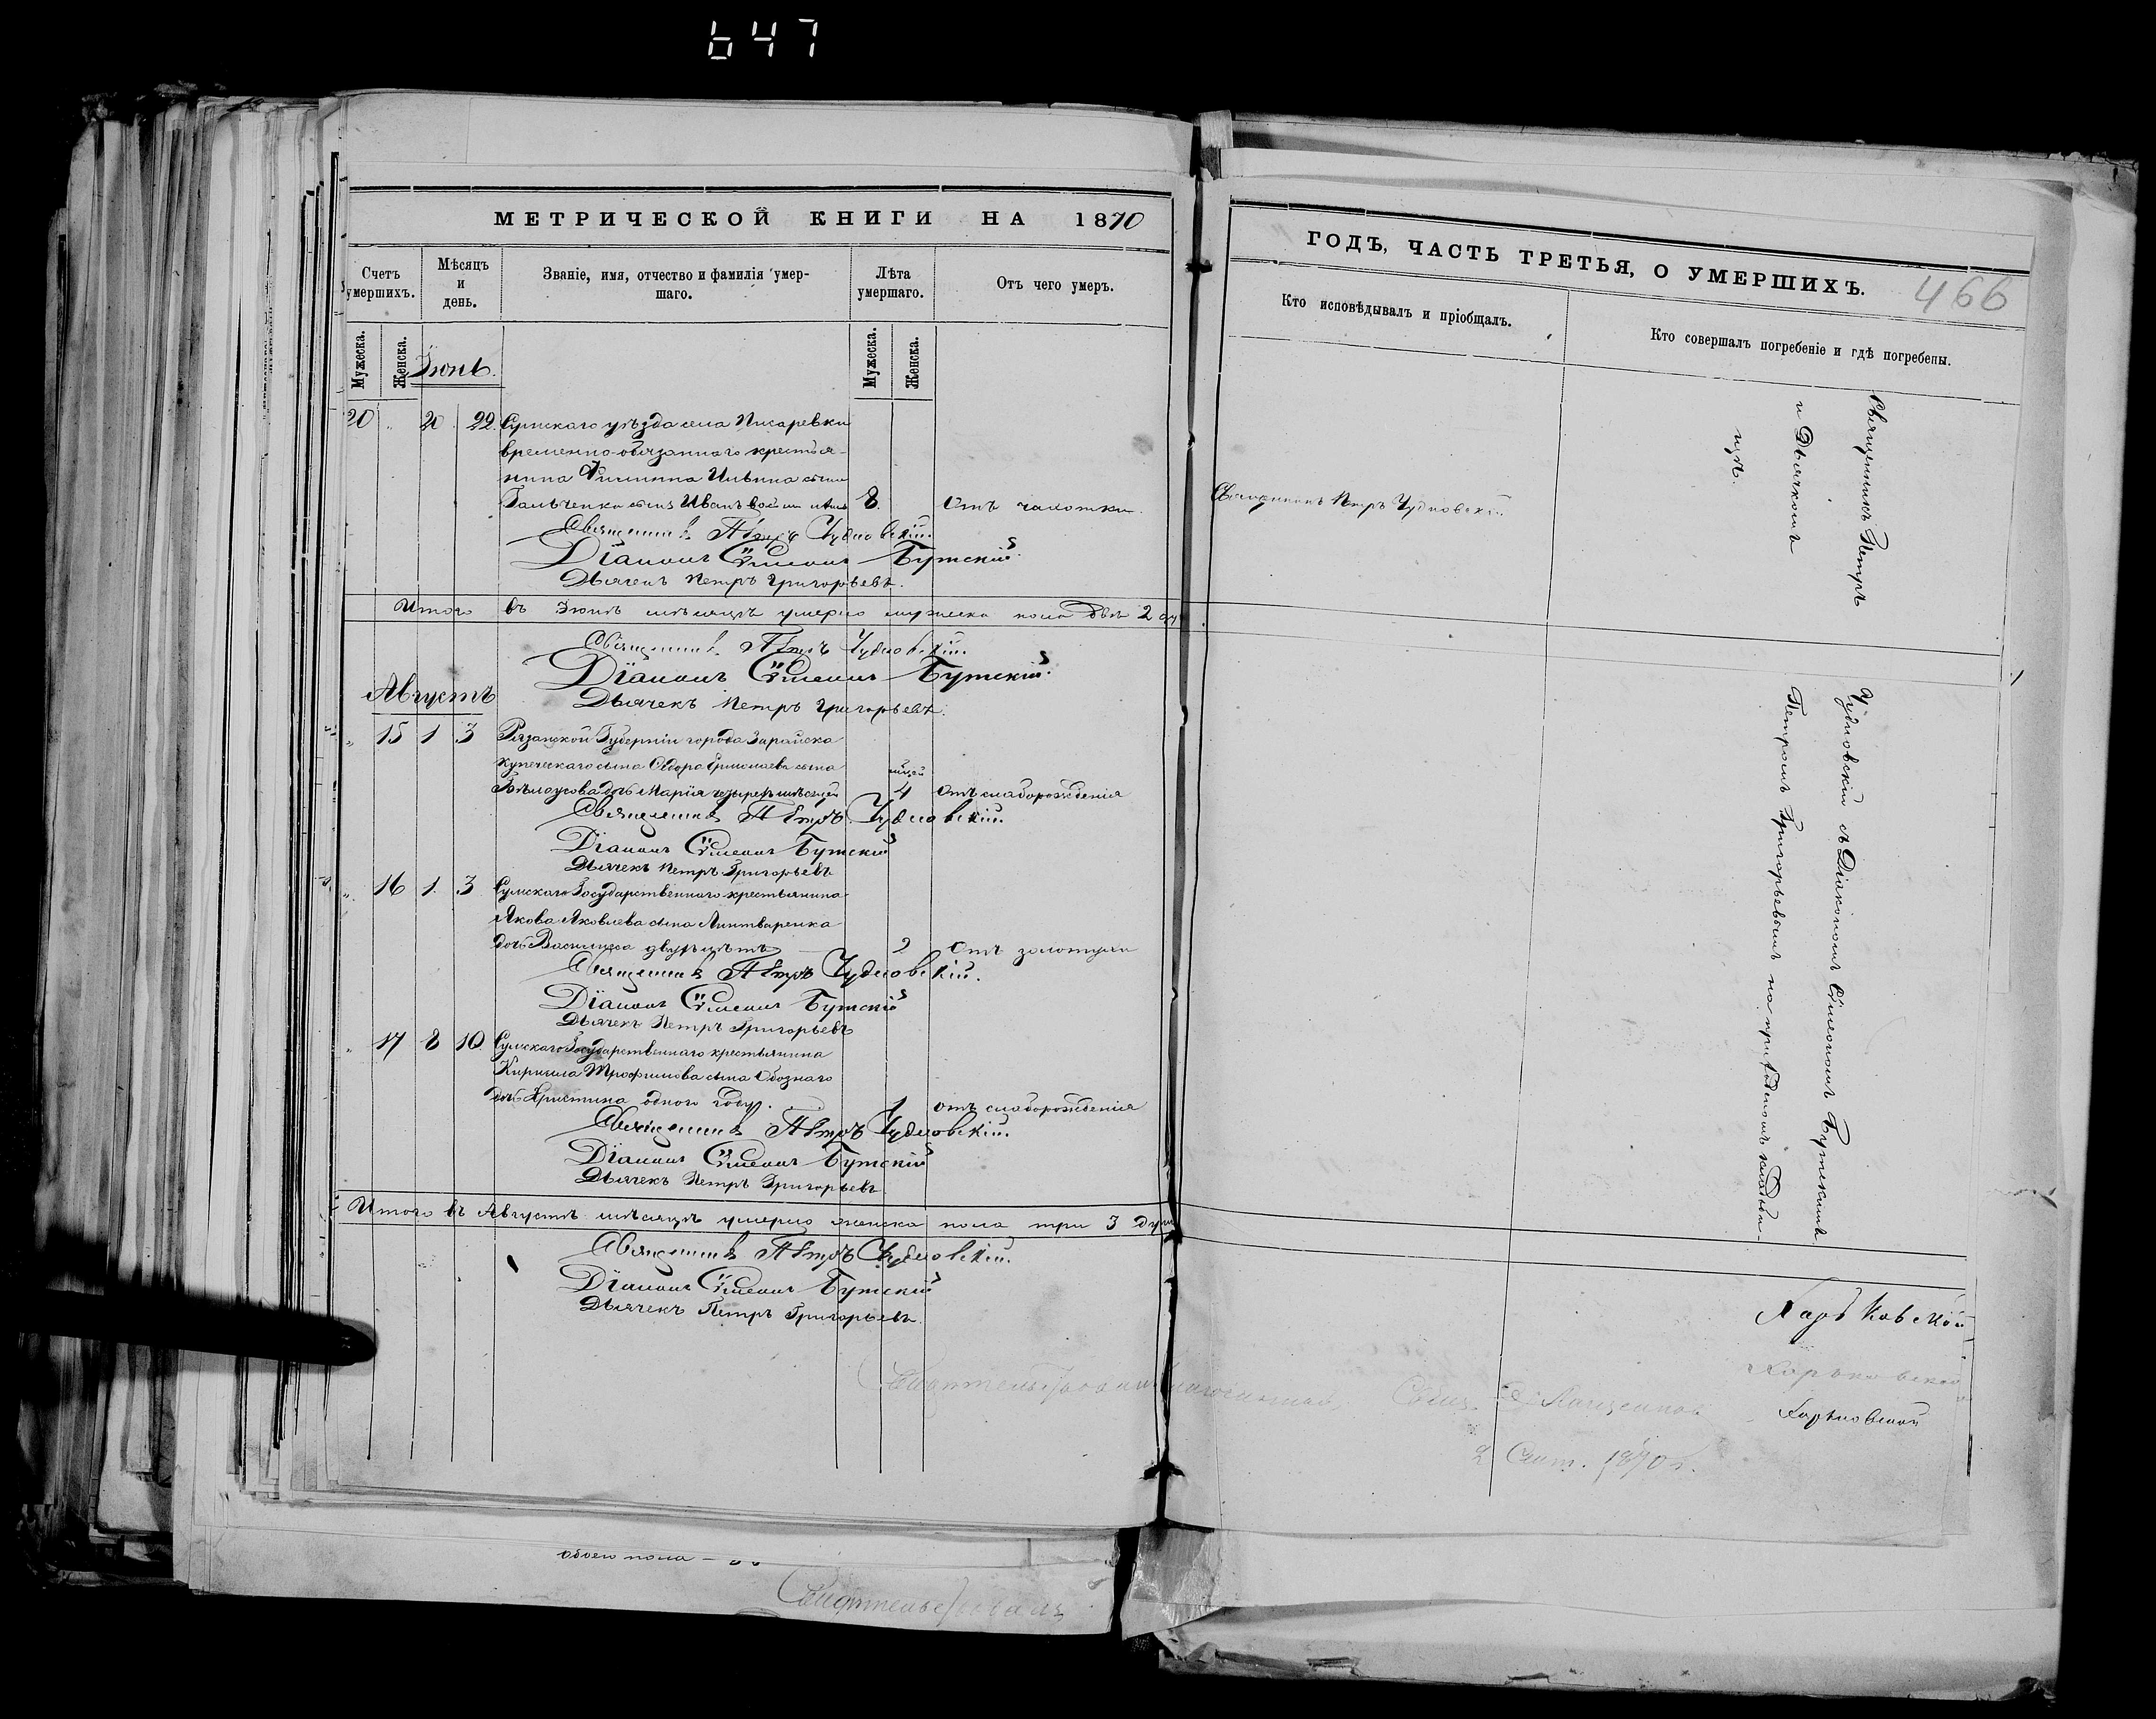 647
МЕТРИЧЕСКОЙ КНИГИ НА 1870
Счетъ умершихъ.
Мѣсяцъ и день.
Званіе, имя, отчество и фамилія умер-
шаго.
Лѣта умершаго.
Отъ чего умеръ.
Мужеска.
Женска.
Мужеска.
Женска.
Іюнь.
20 20 22 Сумскаго уѣзда села Писаревки
временно-обязаннаго крестья-
нина Филиппа Ильина сына
Гальченки сынъ Иванъ 8. Отъ чахотки.
Священникъ Петръ Чудновскій.
Діаконъ Сѵмеонъ Бутскій
Дьячекъ Петръ Григорьевъ.
Итого въ Іюнѣ мѣсяцѣ умерло мужеска пола двѣ 2
Священникъ Петръ Чудновскій.
Діаконъ Сѵмеонъ Бутскій.
Дьячекъ Петръ Григорьевъ.
Августъ
15 1 3 Рязанской Губерніи города Зарайска
купеческаго сына Ѳедора сына
Бѣлоусова дочь Марія четырехъ мѣсяцей 4 Отъ слаборожденія
Священникъ Петръ Чудновскій.
Діаконъ Сѵмеонъ Бутскій
Дьячекъ Петръ Григорьевъ
16 1. 3 Сумскаго Государственнаго крестьянина
Якова Яковлева сына Линтваренка
дочь Василиса двухъ лѣтъ 2 Отъ золотухи
Священникъ Петръ Чудновскій.
Діаконъ Сѵмеонъ Бутскій
Дьячекъ Петръ Григорьевъ
17 8 10. Сумскаго Государственнаго крестьянина
Кирилла Трофимова сына Обознаго
дочь Христина одного году. 1 отъ слаборожденія
Священникъ Петръ Чудновскій.
Діаконъ Сѵмеонъ Бутскій
Дьячекъ Петръ Григорьевъ
Итого въ Августѣ мѣсяцѣ умерло женска пола три 3 душ
Священникъ Петръ Чудновскій.
Діаконъ Сѵмеонъ Бутскій
Дьячекъ Петръ Григорьевъ.
обоего пола
Свидѣтельствовалъ
ГОДЪ, ЧАСТЬ ТРЕТЬЯ, О УМЕРШИХЪ.
466
Кто исповѣдывалъ и пріобщалъ.
Кто совершалъ погребеніе и гдѣ погребены.
Священникъ Петръ Чудновскій
Священникъ Петръ
Чудновскій съ Діакономъ Сѵмеономъ Бутскимъ
и Дьячкомъ
Петромъ Григорьевымъ на приходскомъ кладби-
щѣ.
Харьковской
Харьковской
Харьковской
2 Сент. 1870 г.